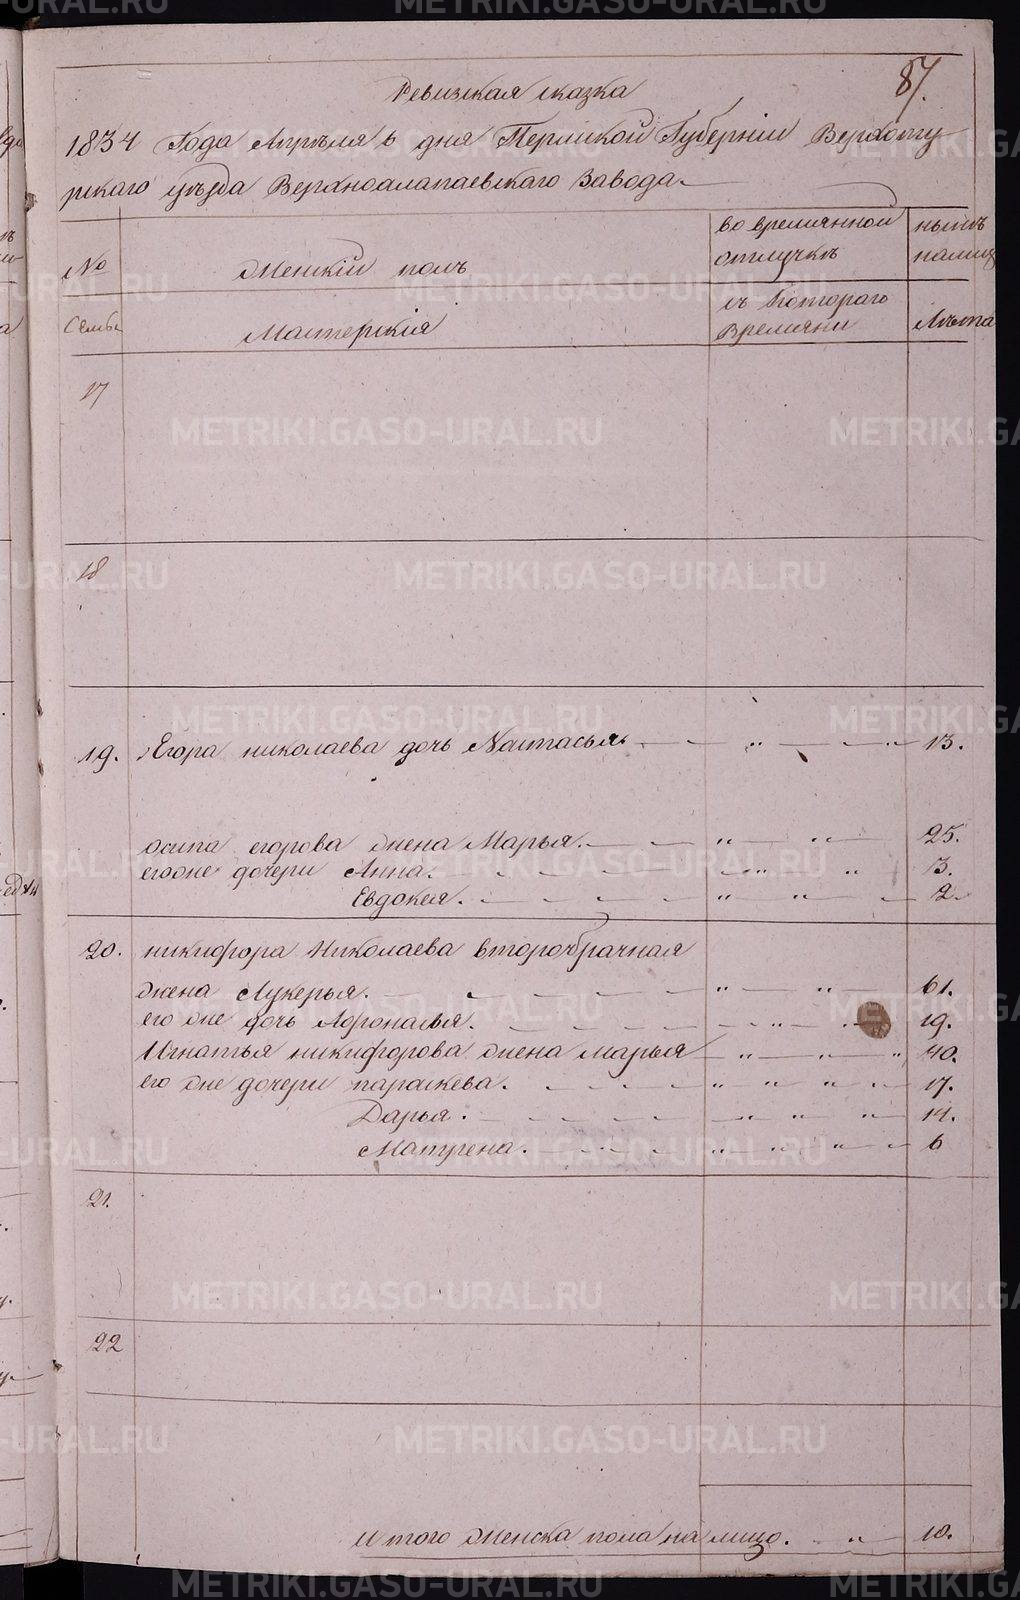 87.
Ревизская сказка
1834 Года Апреля 6 дня Пермской Губернии Верхоту
рского уезда Верхнеалапаевского Завода.
№
Женскiй полъ
во времянной
отлучкъ
нынъ
налицо
Семьи
Мастерскiя
съ Котораго
Времяни
Лъта
17
18
19. Егора николаева дочь Настасья. 13.
осипа егорова жена Марья. 25.
егоже дочери Анна. 3.
Евдокея. 2.
20. никифора Николаева второбрачная
жена Лукерья. 61.
его же дочь Афонасья. 19.
Игнатья никифорова жена марья 40.
его же дочери параскева. 17.
Дарья. 14.
Матрена. 6
21.
22
Итого Женска пола на лицо. 10.
METRIKI.GASO-URAL.RU